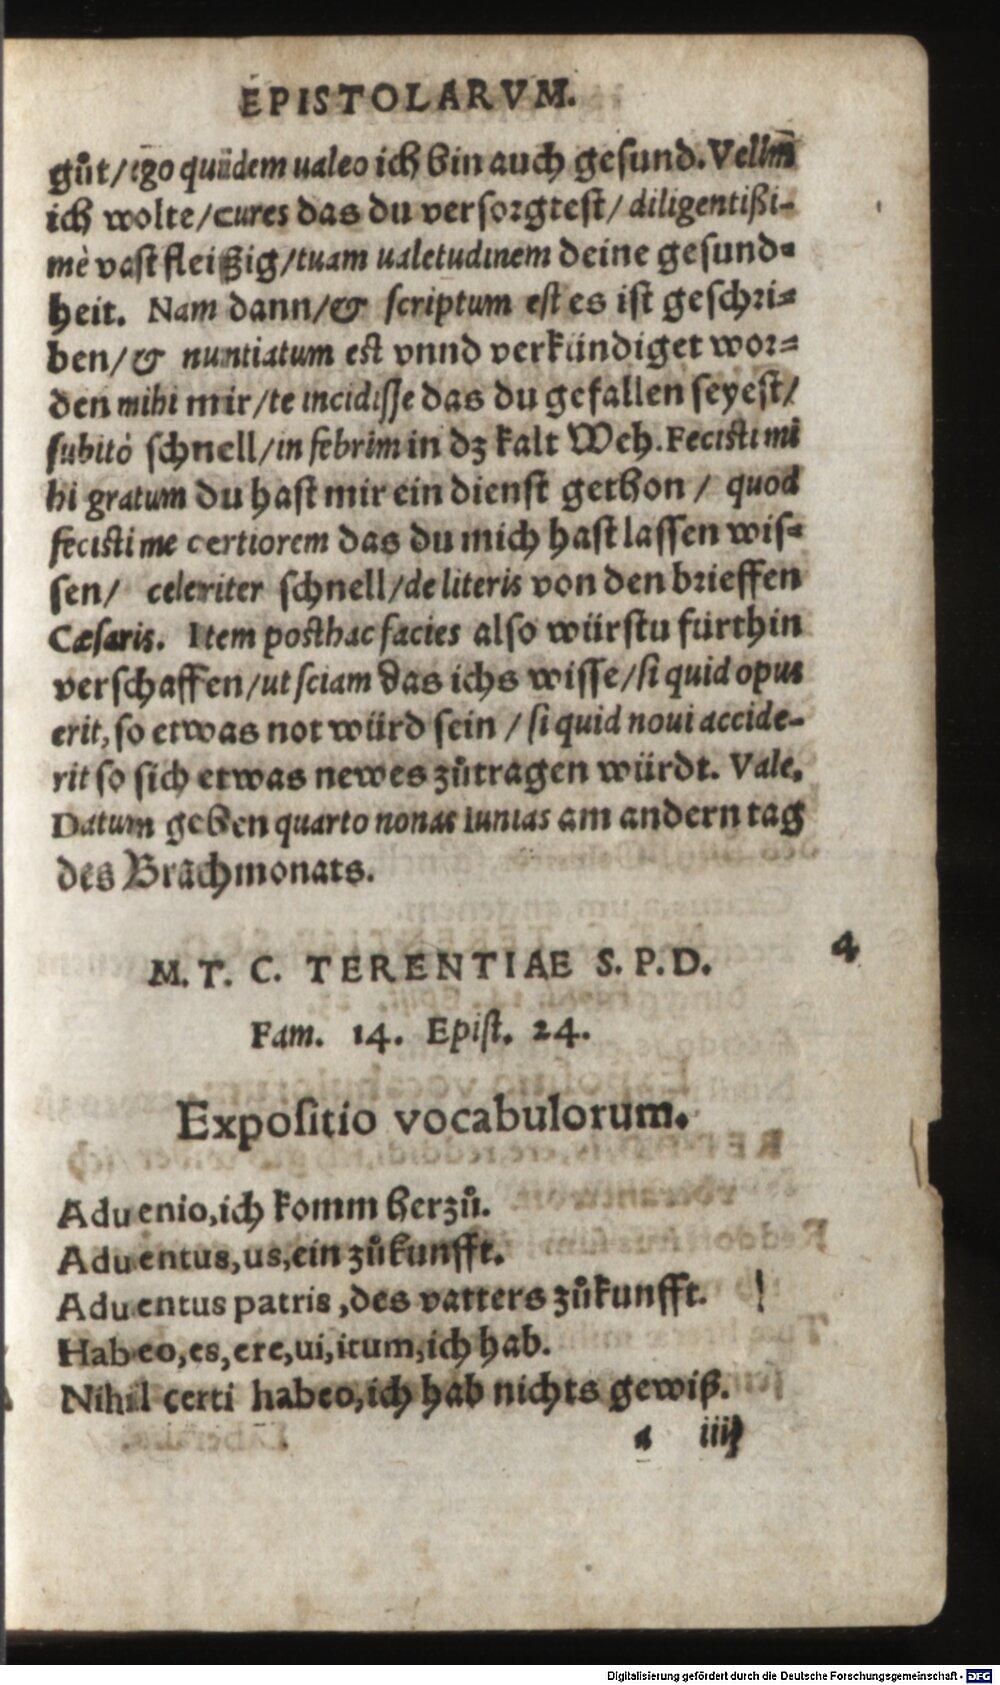 EPISTOLARVM.
gůt/ego quidem ualeo ich bin auch gesund. Vellm̄
ich wolte/cures das du versorgtest/diligentißi-
mè vast fleißig/tuam ualetudinem deine gesund-
heit. Nam dann/& scriptum est es ist geschri-
ben/& nuntiatum est vnnd verkündiget wor-
den mihi mir/te incidisse das du gefallen seyest/
subitò schnell/in febrim in dz kalt Weh. Fecisti mi
hi gratum du hast mir ein dienst gethon / quod
fecisti me certiorem das du mich hast lassen wis-
sen/ celeriter schnell/de literis von den brieffen
Cæsaris. Item posthac facies also würstu fürthin
verschaffen/ut sciam das ichs wisse/si quid opus
erit, so etwas not würd sein / si quid noui accide-
rit so sich etwas newes zůtragen würdt. Vale.
Datum geben quarto nonas Iunias am andern tag
des Brachmonats.
M. T. C. TERENTIAE S. P. D. 4
Fam. 14. Epist. 24.
Expositio vocabulorum.
Aduenio, ich komm herzů.
Aduentus, us, ein zůkunfft.
Aduentus patris, des vatters zůkunfft.
Habeo, es, ere, ui, itum, ich hab.
Nihil certi habeo, ich hab nichts gewiß.
a iiij
Digitalisierung gefördert durch die Deutsche Forschungsgemeinschaft - DFG